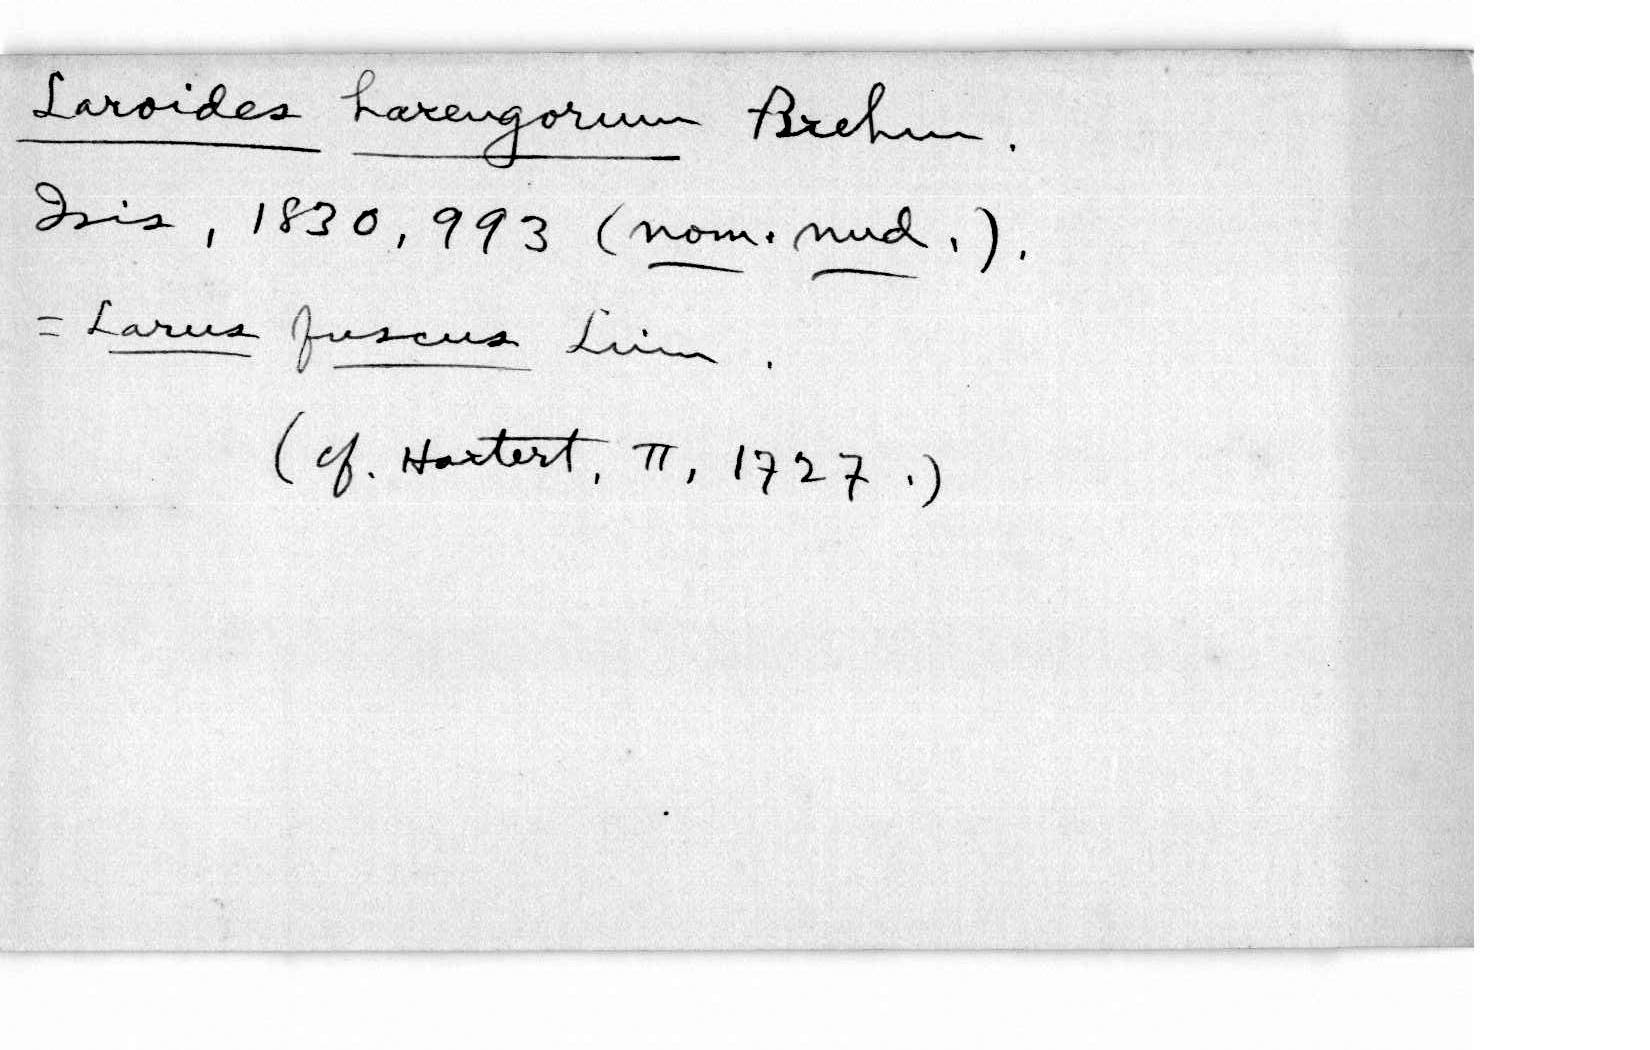 Laroides harengorum Brehm.
Isis, 1830, 993 (nom. nud.).
= Larus fuscus Linn.
(cf. Hartert, II, 1727.)